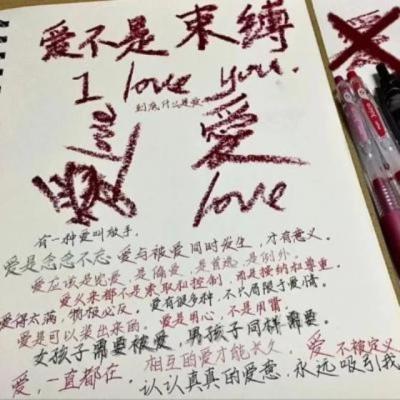 爱不是束缚
I love you.
到底什么是爱
love
愛
love
有一种爱叫放手,
爱是念念不忘 爱与被爱同时发生,才有意义。
爱应该是宠爱,是偏爱,是首选,是例外。
爱从来都不是索取和控制,而是接纳和尊重
爱得太满,物极必反。爱有很多种,不只局限于爱情。
爱是可以装出来的。爱是用心,不是用嘴。
女孩子需要被爱,男孩子同样需要。
相互的爱才能长久, 爱不被定义
爱,一直都在, 认认真真的爱意,永远吸引我
爱